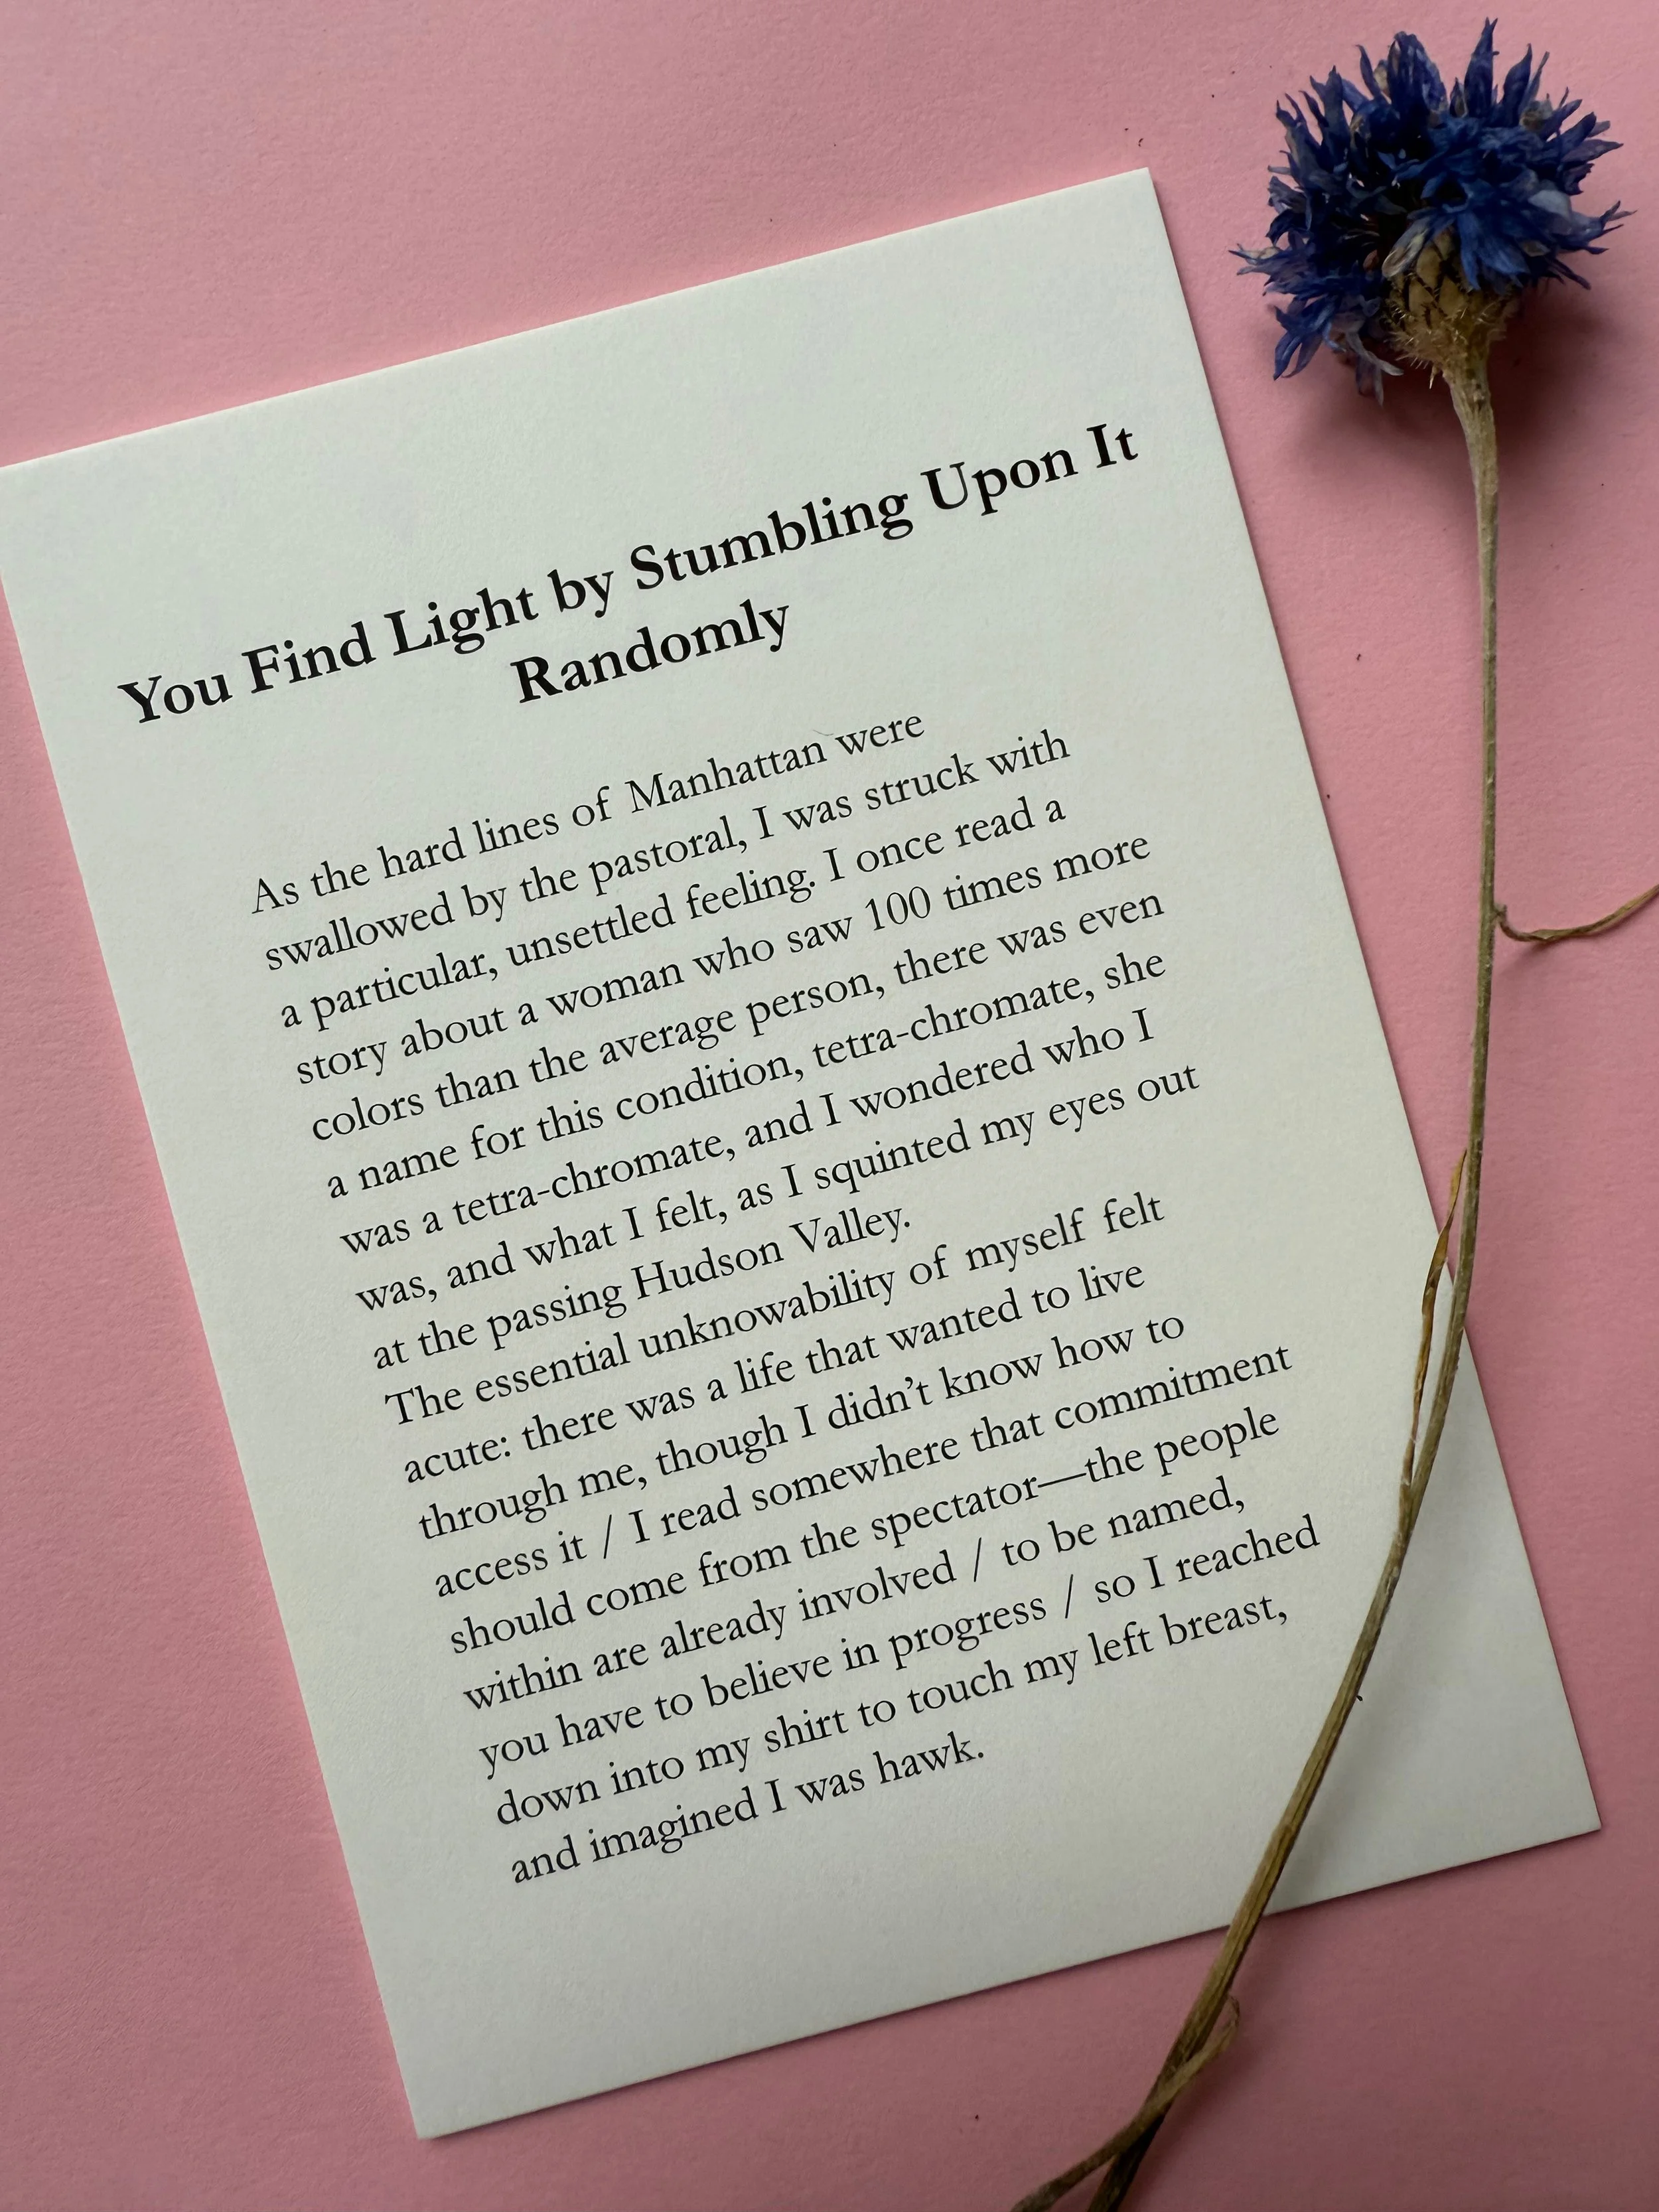 You Find Light by Stumbling Upon It
Randomly
As the hard lines of Manhattan were
swallowed by the pastoral, I was struck with
a particular, unsettled feeling. I once read a
story about a woman who saw 100 times more
colors than the average person, there was even
a name for this condition, tetra-chromate, she
was a tetra-chromate, and I wondered who I
was, and what I felt, as I squinted my eyes out
at the passing Hudson Valley.
The essential unknowability of myself felt
acute: there was a life that wanted to live
through me, though I didn’t know how to
access it / I read somewhere that commitment
should come from the spectator—the people
within are already involved / to be named,
you have to believe in progress / so I reached
down into my shirt to touch my left breast,
and imagined I was hawk.